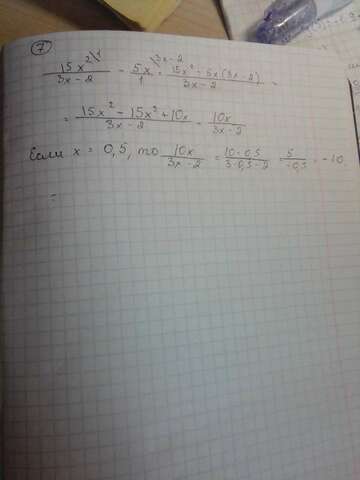 7
15x²\1 / 3x-2 - 5x\3x-2 / 1 = 15x² - 5x(3x-2) / 3x-2 =
= 15x² - 15x² + 10x / 3x-2 = 10x / 3x-2
Если x = 0,5, то 10x / 3x-2 = 10·0,5 / 3·0,5-2 = 5 / -0,5 = -10.
=